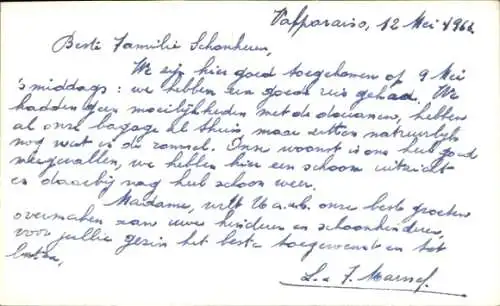 Valparaiso, 12 Mei 196
Beste Familie Schonheren,
We zijn hier goed toegekomen op 9 Mei
's middags: we hebben een goede reis gehad. We
hadden geen moeilijkheden met de douaniers, hebben
al onze bagage al thuis maar zitten natuurlijk
nog wat in de rommel. Onze woonst is ons heel goed
meegevallen, we hebben hier een schoon uitzicht
en daarbij nog heel schoon weer.
Madame, wilt U a.u.b. onze beste groeten
overmaken aan uwe kinderen en schoonkinderen,
voor jullie gezin het beste toegewenst en tot
L. & J. Marnef